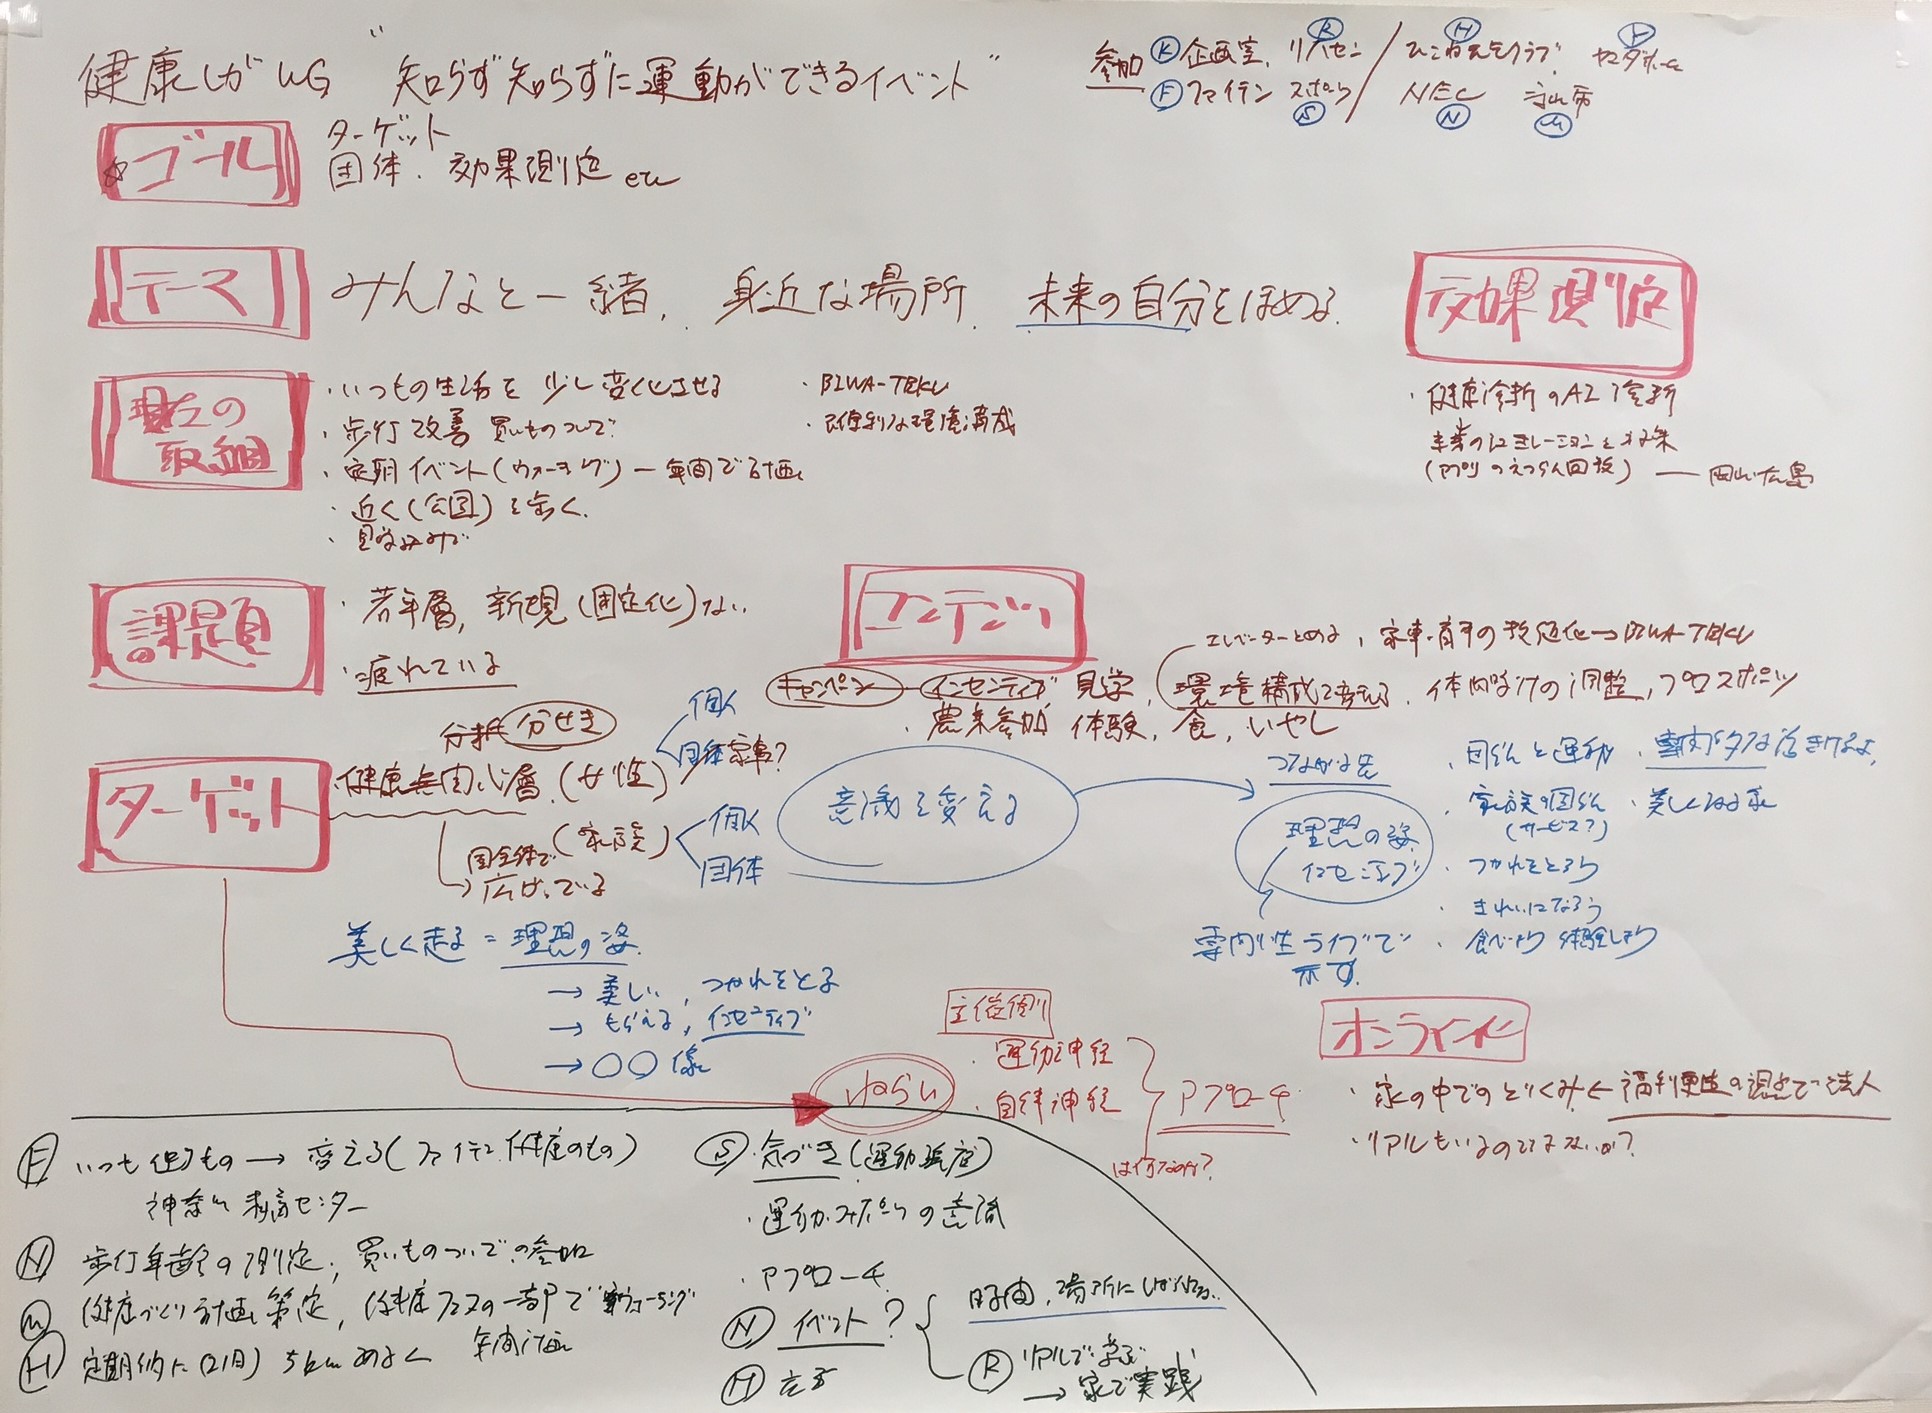 健康しが WG "知らず知らずに運動ができるイベント"
参加 Ⓚ企画室、リハセン Ⓡ / ひこね元気クラブ Ⓗ ヤマダホーム Ⓨ
Ⓕファイテン スポーツ Ⓢ / NEC Ⓝ 守山市 Ⓜ
ゴール
ターゲット
団体、効果測定 etc
テーマ
みんなと一緒、身近な場所、未来の自分をほめる
現在の取組
・いつもの生活を少し変化させる
・歩行改善 買いものついで
・定期イベント(ウォーキング)ー年間で計画
・近く(公園)を歩く
・BIWA-TEKU
・便利な環境構成
効果測定
・健康診断のAI診断
(アプリのえつらん回数) — 岡山、広島
課題
・若年層、新規(固定化)ない
・疲れている
コンテンツ
エレベーターとめる、家事・育児の数値化→BIWA-TEKU
キャンペーン インセンティブ 見学、環境構成で変える、体内時計の調整、プロスポーツ
・農業参加 体験、食、いやし
ターゲット
分析 分せき
健康無関心層、(女性)
個人
団体 家事?
(家族)
個人
団体
国全体で
→広げている
意識を変える
つながる先
理想の姿
インセンティブ
専門性ライブで
示す
・団らんと運動
・家族の団らん
(サービス?)
・つかれをとろう
・きれいになろう
・食べよう 体験しよう
・美しくなる家
美しく走る=理想の姿
→ 美しい、つかれをとる
→ もらえる、インセンティブ
→ 〇〇像
ねらい
主催側
・運動神経
・自律神経
アプローチ
は何なのか?
オンライン化
・家の中でのとりくみ ← 福利厚生の視点で法人
・リアルもいるのではないか?
Ⓕ いつも使うもの → 変える(ファイテン 健康のもの)
神奈川 未病センター
Ⓝ 歩行年齢の測定、買いものついでの参加
Ⓜ 健康づくり計画策定、健康フェスの一部でウォーキング
年間計画
Ⓗ 定期的に(2/月) 5km あるく
Ⓢ・気づき(運動強度)
・運動・スポーツの意識
・アプローチ
Ⓝ イベント?
時間、場所にしばられない
Ⓡ リアルで学ぶ
→ 家で実践
Ⓗ